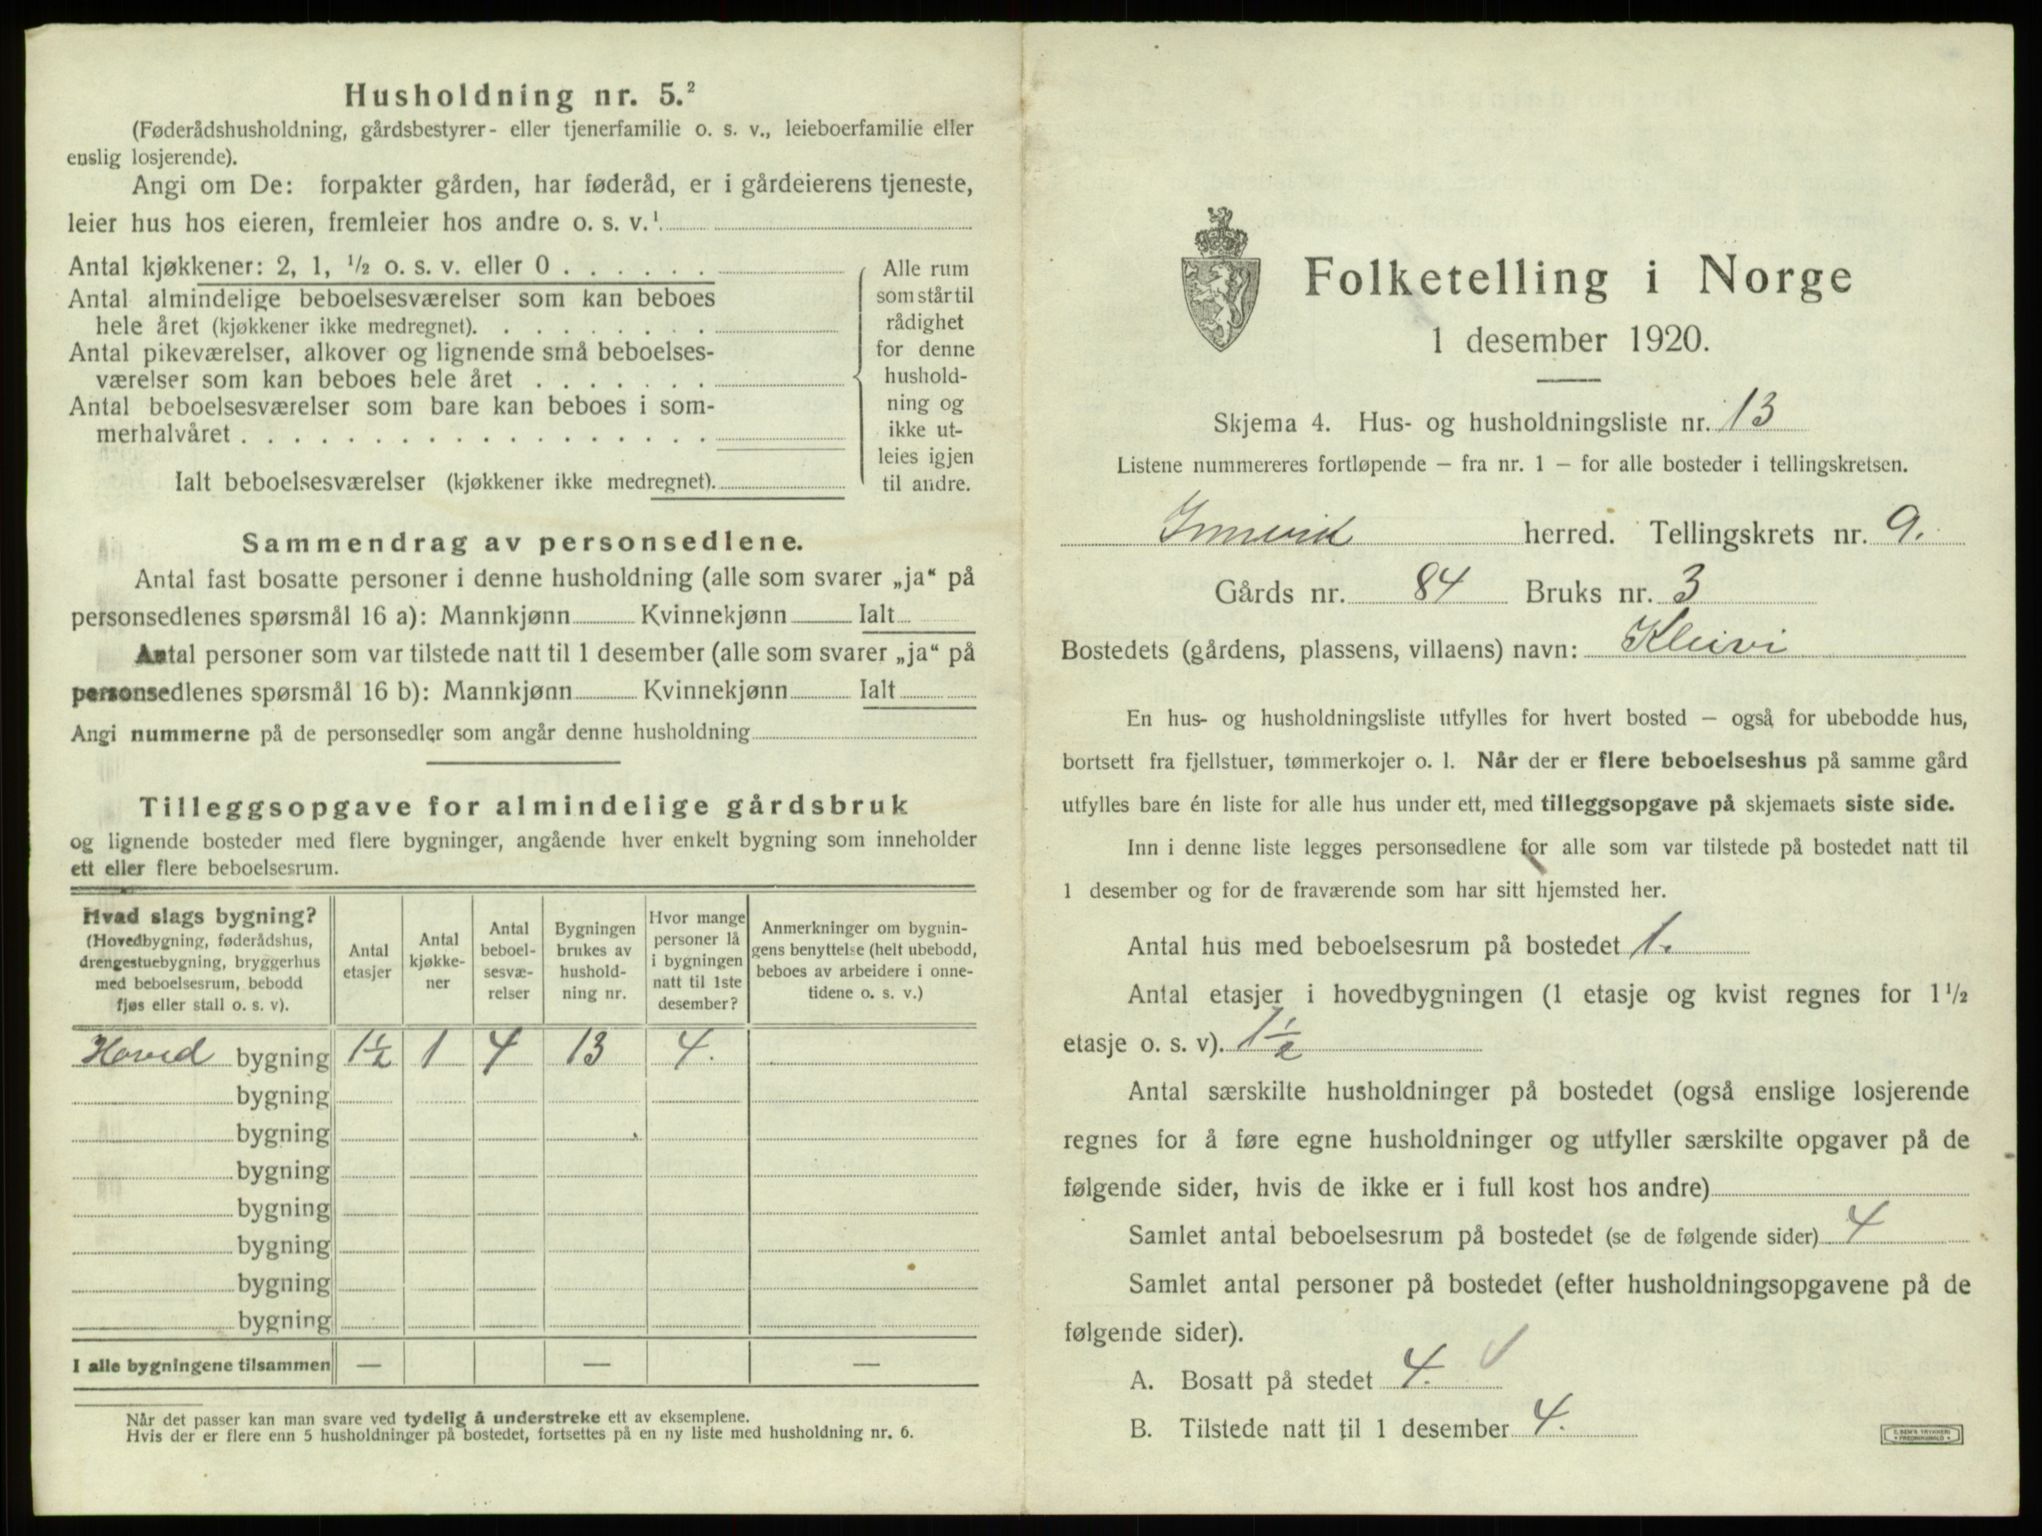 Husholdning nr. 5.²
(Føderådshusholdning, gårdsbestyrer- eller tjenerfamilie o. s. v., leieboerfamilie eller
enslig losjerende).
Angi om De: forpakter gården, har føderåd, er i gårdeierens tjeneste,
leier hus hos eieren, fremleier hos andre o. s. v.¹
Antal kjøkkener: 2, 1, ½ o. s. v. eller 0 . . . . . .
Antal almindelige beboelsesværelser som kan beboes
hele året (kjøkkener ikke medregnet). . . . . . . . .
Antal pikeværelser, alkover og lignende små beboelses-
værelser som kan beboes hele året . . . . . . .
Antal beboelsesværelser som bare kan beboes i som-
merhalvåret . . . . . . . . . . . . . . . . . .
Ialt beboelsesværelser (kjøkkener ikke medregnet).
Alle rum
som står til
rådighet
for denne
hushold-
ning og
ikke ut-
leies igjen
til andre.
Sammendrag av personsedlene.
Antal fast bosatte personer i denne husholdning (alle som svarer „ja“ på
personsedlenes spørsmål 16 a): Mannkjønn Kvinnekjønn Ialt
Antal personer som var tilstede natt til 1 desember (alle som svarer „ja“ på
personsedlenes spørsmål 16 b): Mannkjønn Kvinnekjønn Ialt
Angi nummerne på de personsedler som angår denne husholdning
Tilleggsopgave for almindelige gårdsbruk
og lignende bosteder med flere bygninger, angående hver enkelt bygning som inneholder
ett eller flere beboelsesrum.
Hvad slags bygning?
(Hovedbygning, føderådshus,
drengestuebygning, bryggerhus
med beboelsesrum, bebodd
fjøs eller stall o. s. v).
Antal
etasjer
Antal
kjøkke-
ner
Antal
beboel-
sesvæ-
relser
Bygningen
brukes av
hushold-
ning nr.
Hvor mange
personer lå
i bygningen
natt til 1ste
desember?
Anmerkninger om bygnin-
gens benyttelse (helt ubebodd,
beboes av arbeidere i onne-
tidene o. s. v.)
Hoved bygning 1½ 1 4 13 4.
bygning
bygning
bygning
bygning
bygning
bygning
bygning
I alle bygningene tilsammen — — —
Når det passer kan man svare ved tydelig å understreke ett av eksemplene.
Hvis der er flere enn 5 husholdninger på bostedet, fortsettes på en ny liste med husholdning nr. 6.
Folketelling i Norge
1 desember 1920.
Skjema 4. Hus- og husholdningsliste nr. 13
Listene nummereres fortløpende – fra nr. 1 – for alle bosteder i tellingskretsen.
Innvik herred. Tellingskrets nr. 9.
Gårds nr. 84 Bruks nr. 3
Bostedets (gårdens, plassens, villaens) navn: Kleivi
En hus- og husholdningsliste utfylles for hvert bosted – også for ubebodde hus,
bortsett fra fjellstuer, tømmerkojer o. l. Når der er flere beboelseshus på samme gård
utfylles bare én liste for alle hus under ett, med tilleggsopgave på skjemaets siste side.
Inn i denne liste legges personsedlene for alle som var tilstede på bostedet natt til
1 desember og for de fraværende som har sitt hjemsted her.
Antal hus med beboelsesrum på bostedet 1.
Antal etasjer i hovedbygningen (1 etasje og kvist regnes for 1½
etasje o. s. v). 1½
Antal særskilte husholdninger på bostedet (også enslige losjerende
regnes for å føre egne husholdninger og utfyller særskilte opgaver på de
følgende sider, hvis de ikke er i full kost hos andre)
Samlet antal beboelsesrum på bostedet (se de følgende sider) 4
Samlet antal personer på bostedet (efter husholdningsopgavene på de
følgende sider).
A. Bosatt på stedet 4.
B. Tilstede natt til 1 desember 4.